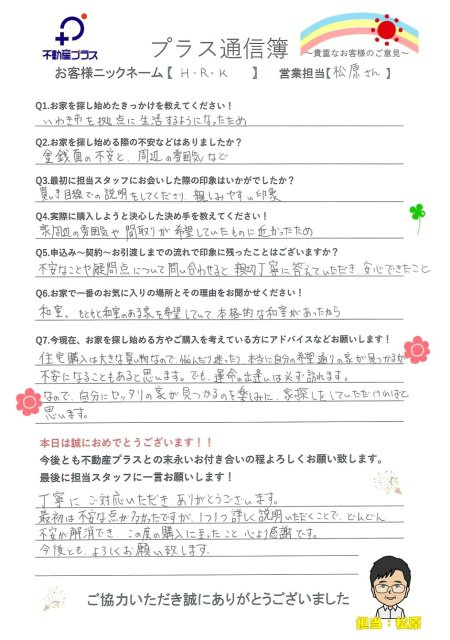 不動産プラス
プラス通信簿
～貴重なお客様のご意見～
お客様ニックネーム【 H・R・K 】 営業担当【 松原さん 】
Q1.お家を探し始めたきっかけを教えてください！
いわき市を拠点に生活するようになったため
Q2.お家を探し始める際の不安などはありましたか？
金銭面の不安と、周辺の雰囲気など
Q3.最初に担当スタッフにお会いした際の印象はいかがでしたか？
買い手目線での説明をしてくださり、親しみやすい印象
Q4.実際に購入しようと決心した決め手を教えてください！
家周辺の雰囲気や間取りが希望していたものに近かったため
Q5.申込み～契約～お引渡しまでの流れで印象に残ったことはございますか？
不安なことや疑問点について問い合わせると親切丁寧に答えていただき、安心できたこと
Q6.お家で一番のお気に入りの場所とその理由をお聞かせください！
和室。もともと和室のある家を希望していて本格的な和室があったから
Q7.今現在、お家を探し始める方やご購入を考えている方にアドバイスなどお願いします！
住宅購入は大きな買い物なので、悩んだり迷ったり、本当に自分の希望通りの家が見つかるか
不安になることもあると思います。でも、運命の出逢いは必ず訪れます。
なので、自分にピッタリの家が見つかるのを楽しみに、家探しをしていただければと
思います。
本日は誠におめでとうございます！！
今後とも不動産プラスとの末永いお付き合いの程よろしくお願い致します。
最後に担当スタッフに一言お願いします！
丁寧にご対応いただきありがとうございます。
最初は不安な点が多かったですが、1つ1つ詳しく説明いただくことで、どんどん
不安が解消でき、この度の購入に至ったこと心より感謝です。
今後とも、よろしくお願い致します。
ご協力いただき誠にありがとうございました
担当：松原